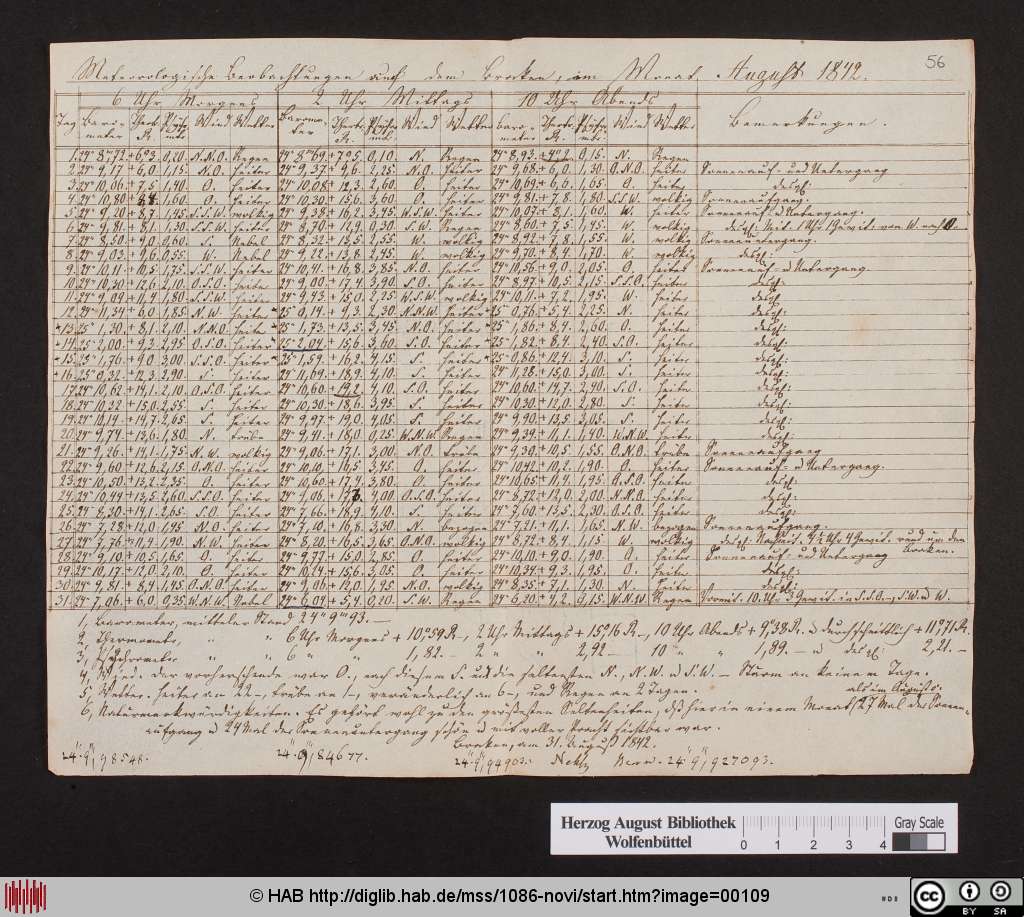 56
Meteorologische Beobachtungen auf dem Brocken, im Monat August 1842.
6 Uhr Morgens 2 Uhr Mittags 10 Uhr Abends
Tag Barometer Wind Wetter Barometer Wind Wetter Barometer Wind Wetter Bemerkungen.
1. 24" 8,72. + 6,3. 0,20. N.N.O. Regen 24" 8,69. + 7,5. 0,10. N. Regen 24" 8,93. + 4,2. 0,15. N. Regen
2. 24" 9,17. + 6,0. 1,15. N.O. heiter 24" 9,37. + 9,6. 2,25. N.O. heiter 24" 9,68. + 6,0. 1,30. O.N.O. heiter Sonnenauf- und Untergang
3. 24" 10,06. + 7,5. 1,40. O. heiter 24" 10,08. + 12,3. 2,60. O. heiter 24" 10,69. + 6,6. O. heiter desgl:
4. 24" 10,80. 1,60. O. heiter 24" 10,30. + 15,6. 3,60. O. heiter 24" 9,81. + 7,8. S.S.W. wolkig Sonnenaufgang.
5. 24" 9,20. + 8,7. 1,45. S.S.W. wolkig 24" 9,38. + 16,2. 3,45. W.S.W. heiter 24" 10,07. + 8,1. 1,60. W. heiter Sonnenauf- u Untergang.
6. 24" 9,81. + 8,1. 1,30. S.S.W. heiter 24" 8,70. + 12,9. 0,30. S.W. Regen 24" 8,60. + 7,5. 1,45. W. wolkig desgl:
7. 24" 8,50. + 9,0. 0,60. S. Nebel 24" 8,32. + 13,5. 2,55. W. wolkig 24" 8,92. + 7,8. 1,55. W. wolkig Sonnenuntergang.
8. 24" 9,03. + 9,6. 0,55. W. Nebel 24" 9,22. + 13,8. 2,45. W. wolkig 24" 9,70. + 8,4. 1,70. W. wolkig desgl:
9. 24" 10,11. + 10,5. 1,75. S.S.W. heiter 24" 10,41. + 16,8. 3,85. N.O. heiter 24" 10,56. + 9,0. 2,05. O. heiter Sonnenauf- u Untergang.
10. 24" 10,30. + 12,6. 2,10. O.S.O. heiter 24" 9,00. + 17,4. 3,90. S.O. heiter 24" 8,97. + 10,5. 2,15. S.S.O. heiter desgl:
11. 24" 9,09. + 11,4. 1,80. S.S.W. heiter 24" 9,43. + 15,0. 2,25. W.S.W. wolkig 24" 10,11. + 7,2. 1,95. W. heiter desgl:
12. 24" 11,34. + 6,0. 1,85. N.W. heiter 25" 0,14. + 9,3. 2,30. N.N.W. heiter 25" 0,76. + 5,4. 2,25. N. heiter desgl:
13. 25" 1,30. + 8,1. 2,10. N.N.O. heiter 25" 1,73. + 13,5. 3,45. N.O. heiter 25" 1,86. + 8,4. 2,60. O. heiter desgl:
14. 25" 2,00. + 9,3. 2,95. O.S.O. heiter 25" 2,04. + 15,6. 3,60. S.O. heiter 25" 1,82. + 8,4. 2,40. S.O. heiter desgl:
15. 25" 1,76. + 9,0. 3,00. S.S.O. heiter 25" 1,59. + 16,2. 4,15. S. heiter 25" 0,86. + 12,4. 3,10. S. heiter desgl:
16. 25" 0,32. + 12,3. 2,90. S. heiter 24" 11,69. + 18,9. 4,10. S. heiter 24" 11,28. + 15,0. 3,00. S. heiter desgl:
17. 24" 10,62. + 14,1. 2,10. O.S.O. heiter 24" 10,60. + 19,2. 4,10. S.O. heiter 24" 10,60. + 14,7. 2,40. S.O. heiter desgl:
18. 24" 10,32. + 15,0. 2,55. S. heiter 24" 10,30. + 18,6. 3,95. S. heiter 24" 10,30. + 12,0. 2,80. S. heiter desgl:
19. 24" 10,14. + 14,7. 2,65. S. heiter 24" 9,97. + 19,0. 4,05. S. heiter 24" 9,90. + 13,5. 2,05. S. heiter desgl:
20. 24" 9,74. + 13,6. 1,80. N. trübe 24" 9,41. + 18,0. 0,25. W.N.W. Regen 24" 9,39. + 11,1. 1,40. W.N.W. heiter desgl:
21. 24" 9,26. + 11,1. 1,75. N.W. wolkig 24" 9,06. + 17,1. 3,00. N.O. trübe 24" 9,30. + 10,5. 1,55. O.N.O. trübe Sonnenaufgang
22. 24" 9,60. + 12,6. 2,15. O.N.O. heiter 24" 10,10. + 16,5. 3,45. O. heiter 24" 10,42. + 10,2. 1,90. O. heiter Sonnenauf- u Untergang.
23. 24" 10,50. + 13,2. 2,35. O. heiter 24" 10,60. + 17,4. 3,80. O. heiter 24" 10,65. + 11,4. 1,95. O.S.O. heiter desgl:
24. 24" 10,44. + 13,5. 2,60. S.S.O. heiter 24" 9,06. 4,00. O.S.O. heiter 24" 8,72. + 12,0. 2,00. N.N.O. heiter desgl:
25. 24" 8,30. + 14,1. 2,65. S.O. heiter 24" 7,66. + 18,9. 4,10. S. heiter 24" 7,60. + 13,5. 2,30. O.S.O. heiter desgl:
26. 24" 7,28. + 12,0. 1,95. N.O. heiter 24" 7,10. + 16,8. 3,30. N. bezogen 24" 7,21. + 11,1. 1,65. N.W. bezogen Sonnenaufgang.
27. 24" 7,76. + 11,4. 1,90. N.W. heiter 24" 8,20. + 16,5. 3,65. O.N.O. wolkig 24" 8,72. + 8,4. 1,15. W. wolkig desgl: rund um den Brocken.
28. 24" 9,10. + 10,5. 1,65. O. heiter 24" 9,72. + 15,0. 2,85. O. heiter 24" 10,10. + 9,0. 1,90. O. heiter Sonnenauf- und Untergang
29. 24" 10,17. + 12,0. 2,10. O. heiter 24" 10,24. + 15,6. 3,05. O. heiter 24" 10,34. + 9,3. 1,95. O. heiter desgl:
30. 24" 9,81. + 8,4. 1,45. O.N.O. heiter 24" 9,05. + 12,0. 1,95. N.O. wolkig 24" 8,35. + 7,1. 1,30. N. heiter desgl:
31. 24" 7,06. + 6,0. 0,35. W.N.W. Nebel 24" 6,09. + 5,4. 0,20. S.W. Regen 24" 6,20. + 4,2. 0,15. W.N.W. Regen
1, Barometer, mittler Stand 24" 9‴ 93. —
2, Thermometer, " " 6 Uhr Morgens + 10,°59 R., 2 Uhr Mittags + 15,°16 R., 10 Uhr Abends + 9,°38 R. u durchschnittlich + 11,°71 R.
3, Psychrometer " " 6 " " 1,82. — 2 " " 2,92 — 10 " " 1,89. — u desgl: 2,21. —
4, Wind. der vorherrschende war O., nach diesem S. und die seltensten N., N.W. u S.W. — Sturm an keinem Tage.
5, Wetter. heiter an 22 —, trübe an 1 —, veränderlich an 6 —, und Regen an 2 Tagen.
als im August
6, Naturmerkwürdigkeiten. Es gehört wohl zu den größesten Seltenheiten, daß hier in einem Monat 27 Mal des Sonnen-
aufgang u 24 Mal des Sonnenuntergang schön u mit voller Pracht sichtbar war.
Brocken, am 31. August 1842.
24" 9‴, 98548. 24" 9‴, 84677. 24" 9‴, 94903. Nehse 24" 9‴, 927093.
Herzog August Bibliothek
Wolfenbüttel
0 1 2 3 4
Gray Scale
© HAB http://diglib.hab.de/mss/1086-novi/start.htm?image=00109
cc BY SA